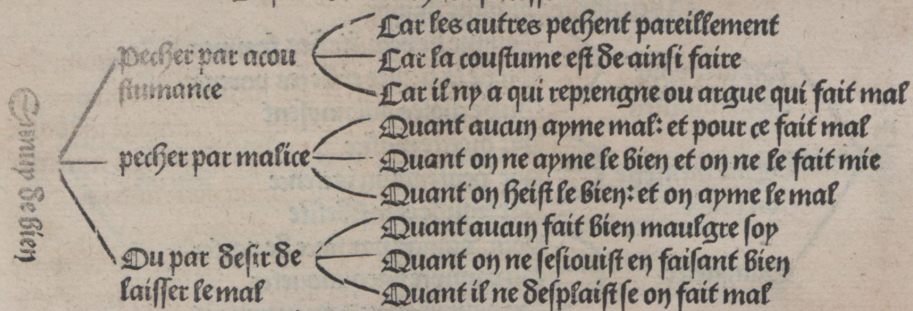 Ennuy de bien
Pecher par acou
stumance
Car les autres pechent pareillement
Car la coustume est de ainsi faire
Car il ny a qui reprengne ou argue qui fait mal
pecher par malice
Quant aucun ayme mal: et pour ce fait mal
Quant on ne ayme le bien et on ne le fait mie
Quant on heist le bien: et on ayme le mal
Ou par desir de
laisser le mal
Quant aucun fait bien maulgre soy
Quant on ne sesiouist en faisant bien
Quant il ne desplaist se on fait mal